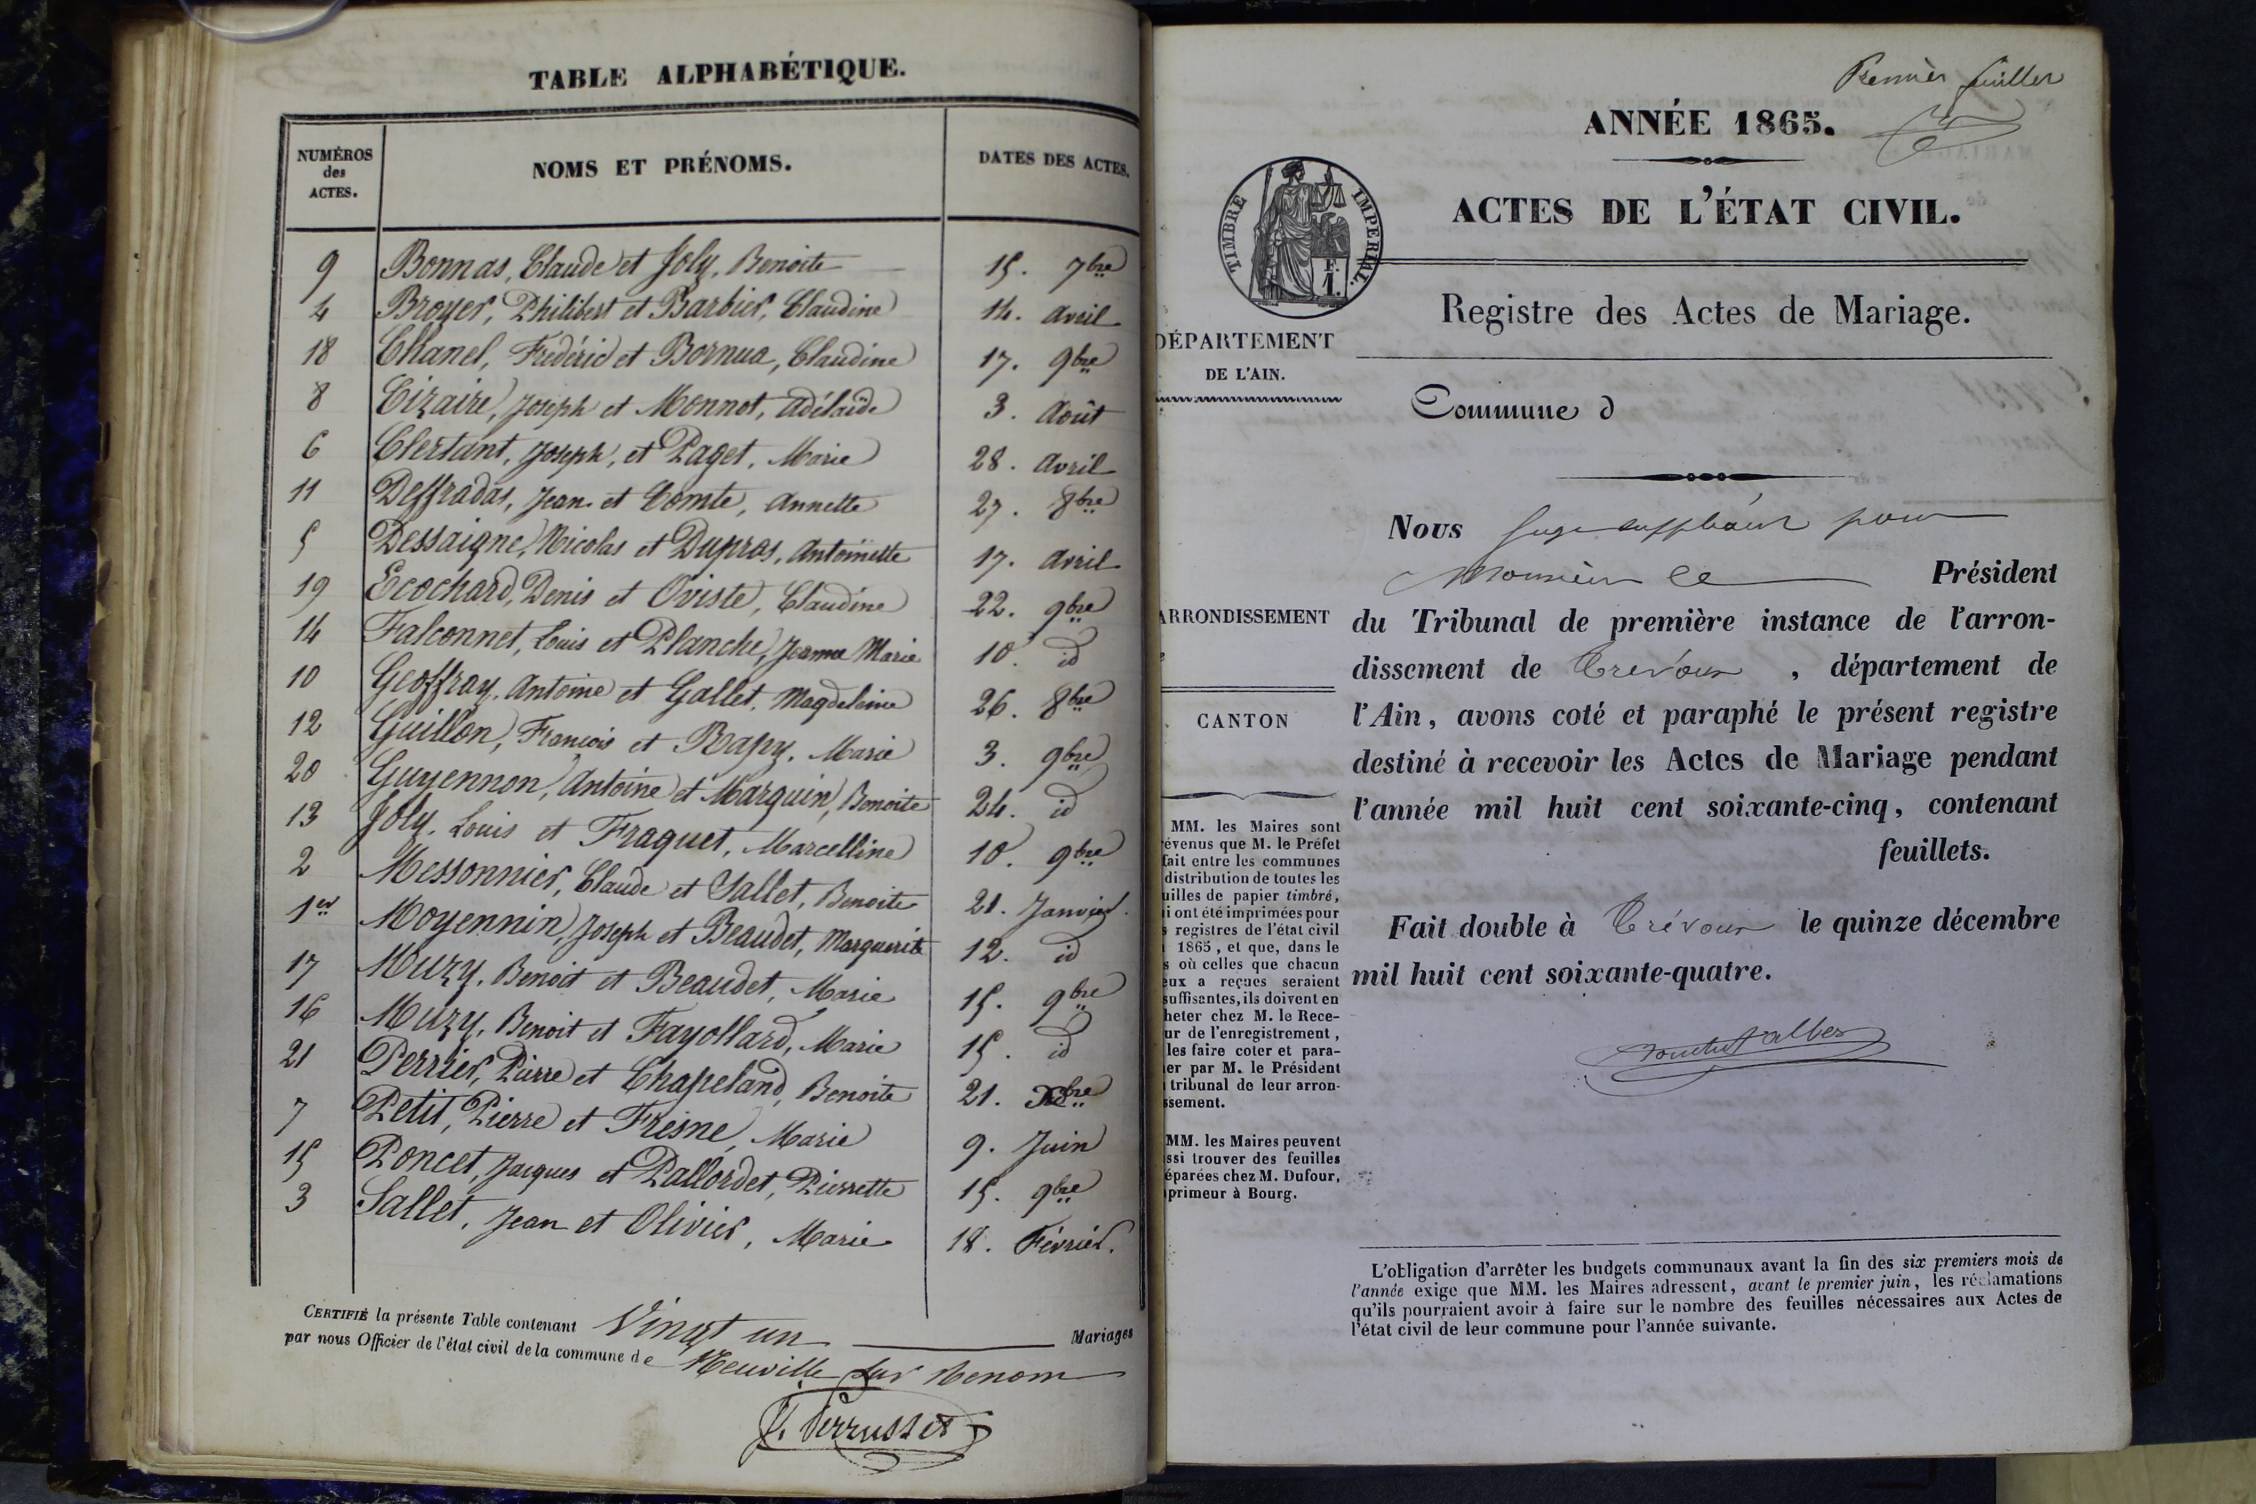 TABLE ALPHABÉTIQUE.
NUMÉROS des ACTES. NOMS ET PRÉNOMS. DATES DES ACTES.
9 Bonnas, Claude et Joly, Benoite 15. 7bre
4 Broyer, Philibert et Barbier, Claudine 14. Avril
18 Chanel, Frédéric et Bornua, Claudine 17. 9bre
8 Cizaire, Joseph et Monnot, Adélaïde 3. Août
6 Clertant, Joseph, et Paget, Marie 28. Avril
11 Deffradas, Jean et Comte, Annette 27. 8bre
5 Dessaigne, Nicolas et Dupras, Antoinette 17. Avril
19 Ecochard, Denis et Oviste, Claudine 22. 9bre
14 Falconnet, Louis et Planche, Jeanne Marie 10. id
10 Geoffray, Antoine et Gallet, Magdeleine 26. 8bre
12 Guillon, François et Rapy, Marie 3. 9bre
20 Guyennon, Antoine et Marguin, Benoite 24. id
13 Joly, Louis et Fraguet, Marcelline 10. 9bre
2 Messonnier, Claude et Sallet, Benoite 21. Janvier.
1er Moyennin, Joseph et Beaudet, Marguerite 12. id
17 Muzy, Benoit et Beaudet, Marie 15. 9bre
16 Muzy, Benoit et Fayollard, Marie 15. id
21 Perrier, Pierre et Chapeland, Benoite 21. Xbre
7 Petit, Pierre et Fresne, Marie 9. Juin
15 Poncet, Jacques et Pallordet, Pierrette 15. 9bre
3 Sallet, Jean et Olivier, Marie 18. Février.
CERTIFIÉ la présente Table contenant Vingt un Mariages
par nous Officier de l'état civil de la commune de Neuville sur Renom
Perrusset
Premier feuillet
ANNÉE 1865.
ACTES DE L'ÉTAT CIVIL.
TIMBRE IMPÉRIAL.
F.
1.
Registre des Actes de Mariage.
DÉPARTEMENT
DE L'AIN.
Commune d
Nous Juge suppléant pour
Monsieur le Président
ARRONDISSEMENT
du Tribunal de première instance de l'arron-
dissement de Trévoux, département de
CANTON
l'Ain, avons coté et paraphé le présent registre
destiné à recevoir les Actes de Mariage pendant
l'année mil huit cent soixante-cinq, contenant
feuillets.
Fait double à Trévoux le quinze décembre
mil huit cent soixante-quatre.
MM. les Maires sont
évenus que M. le Préfet
fait entre les communes
distribution de toutes les
uilles de papier timbré,
i ont été imprimées pour
s registres de l'état civil
1865, et que, dans le
s où celles que chacun
eux a reçues seraient
suffisantes, ils doivent en
heter chez M. le Rece-
ur de l'enregistrement,
les faire coter et para-
er par M. le Président
tribunal de leur arron-
ssement.
MM. les Maires peuvent
ssi trouver des feuilles
éparées chez M. Dufour,
primeur à Bourg.
L'obligation d'arrêter les budgets communaux avant la fin des six premiers mois de
l'année exige que MM. les Maires adressent, avant le premier juin, les réclamations
qu'ils pourraient avoir à faire sur le nombre des feuilles nécessaires aux Actes de
l'état civil de leur commune pour l'année suivante.